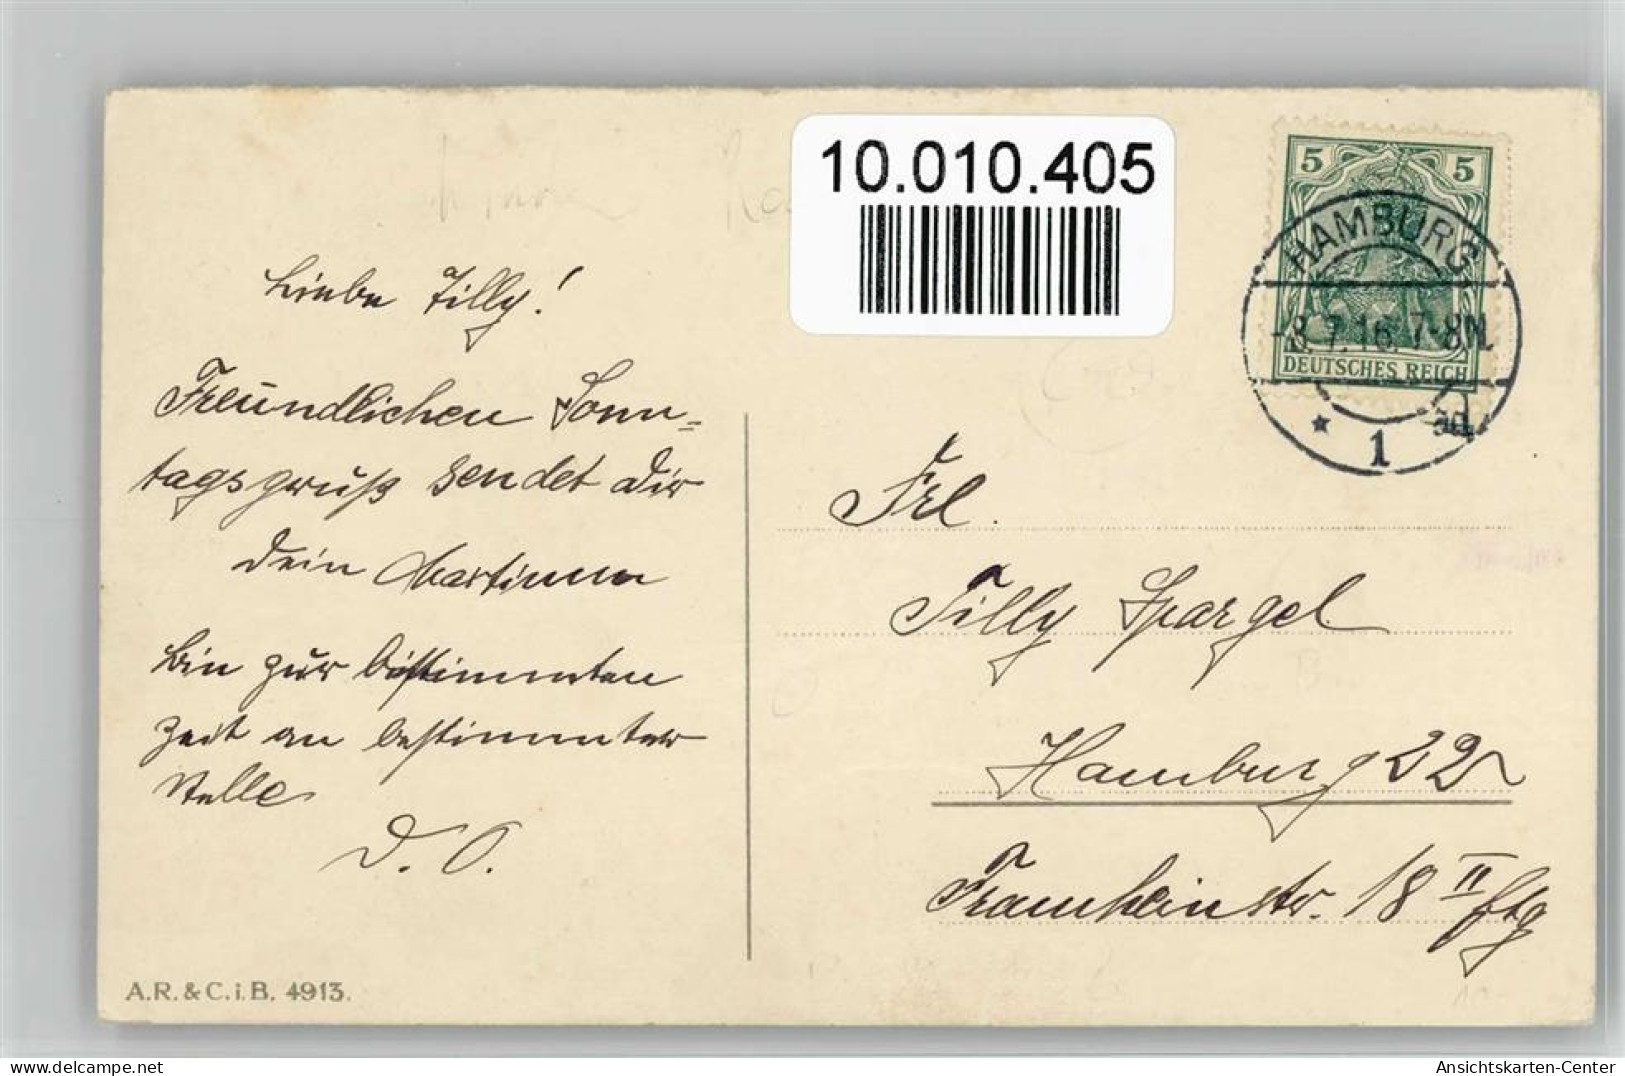 10.010.405
5 5
HAMBURG
-8.7.16.7-8N.
DEUTSCHES REICH
* 1
Liebe Tilly!
Freundlichen Sonn=
tagsgruß sendet Dir
Dein
Bin zur bestimmten
Zeit an bestimmter
Stelle
D. O.
Frl.
Tilly Spargel
Hamburg 22
18 II
A.R. & C.i.B. 4913.
Ansichtskarten-Center
https://www.delcampe.net